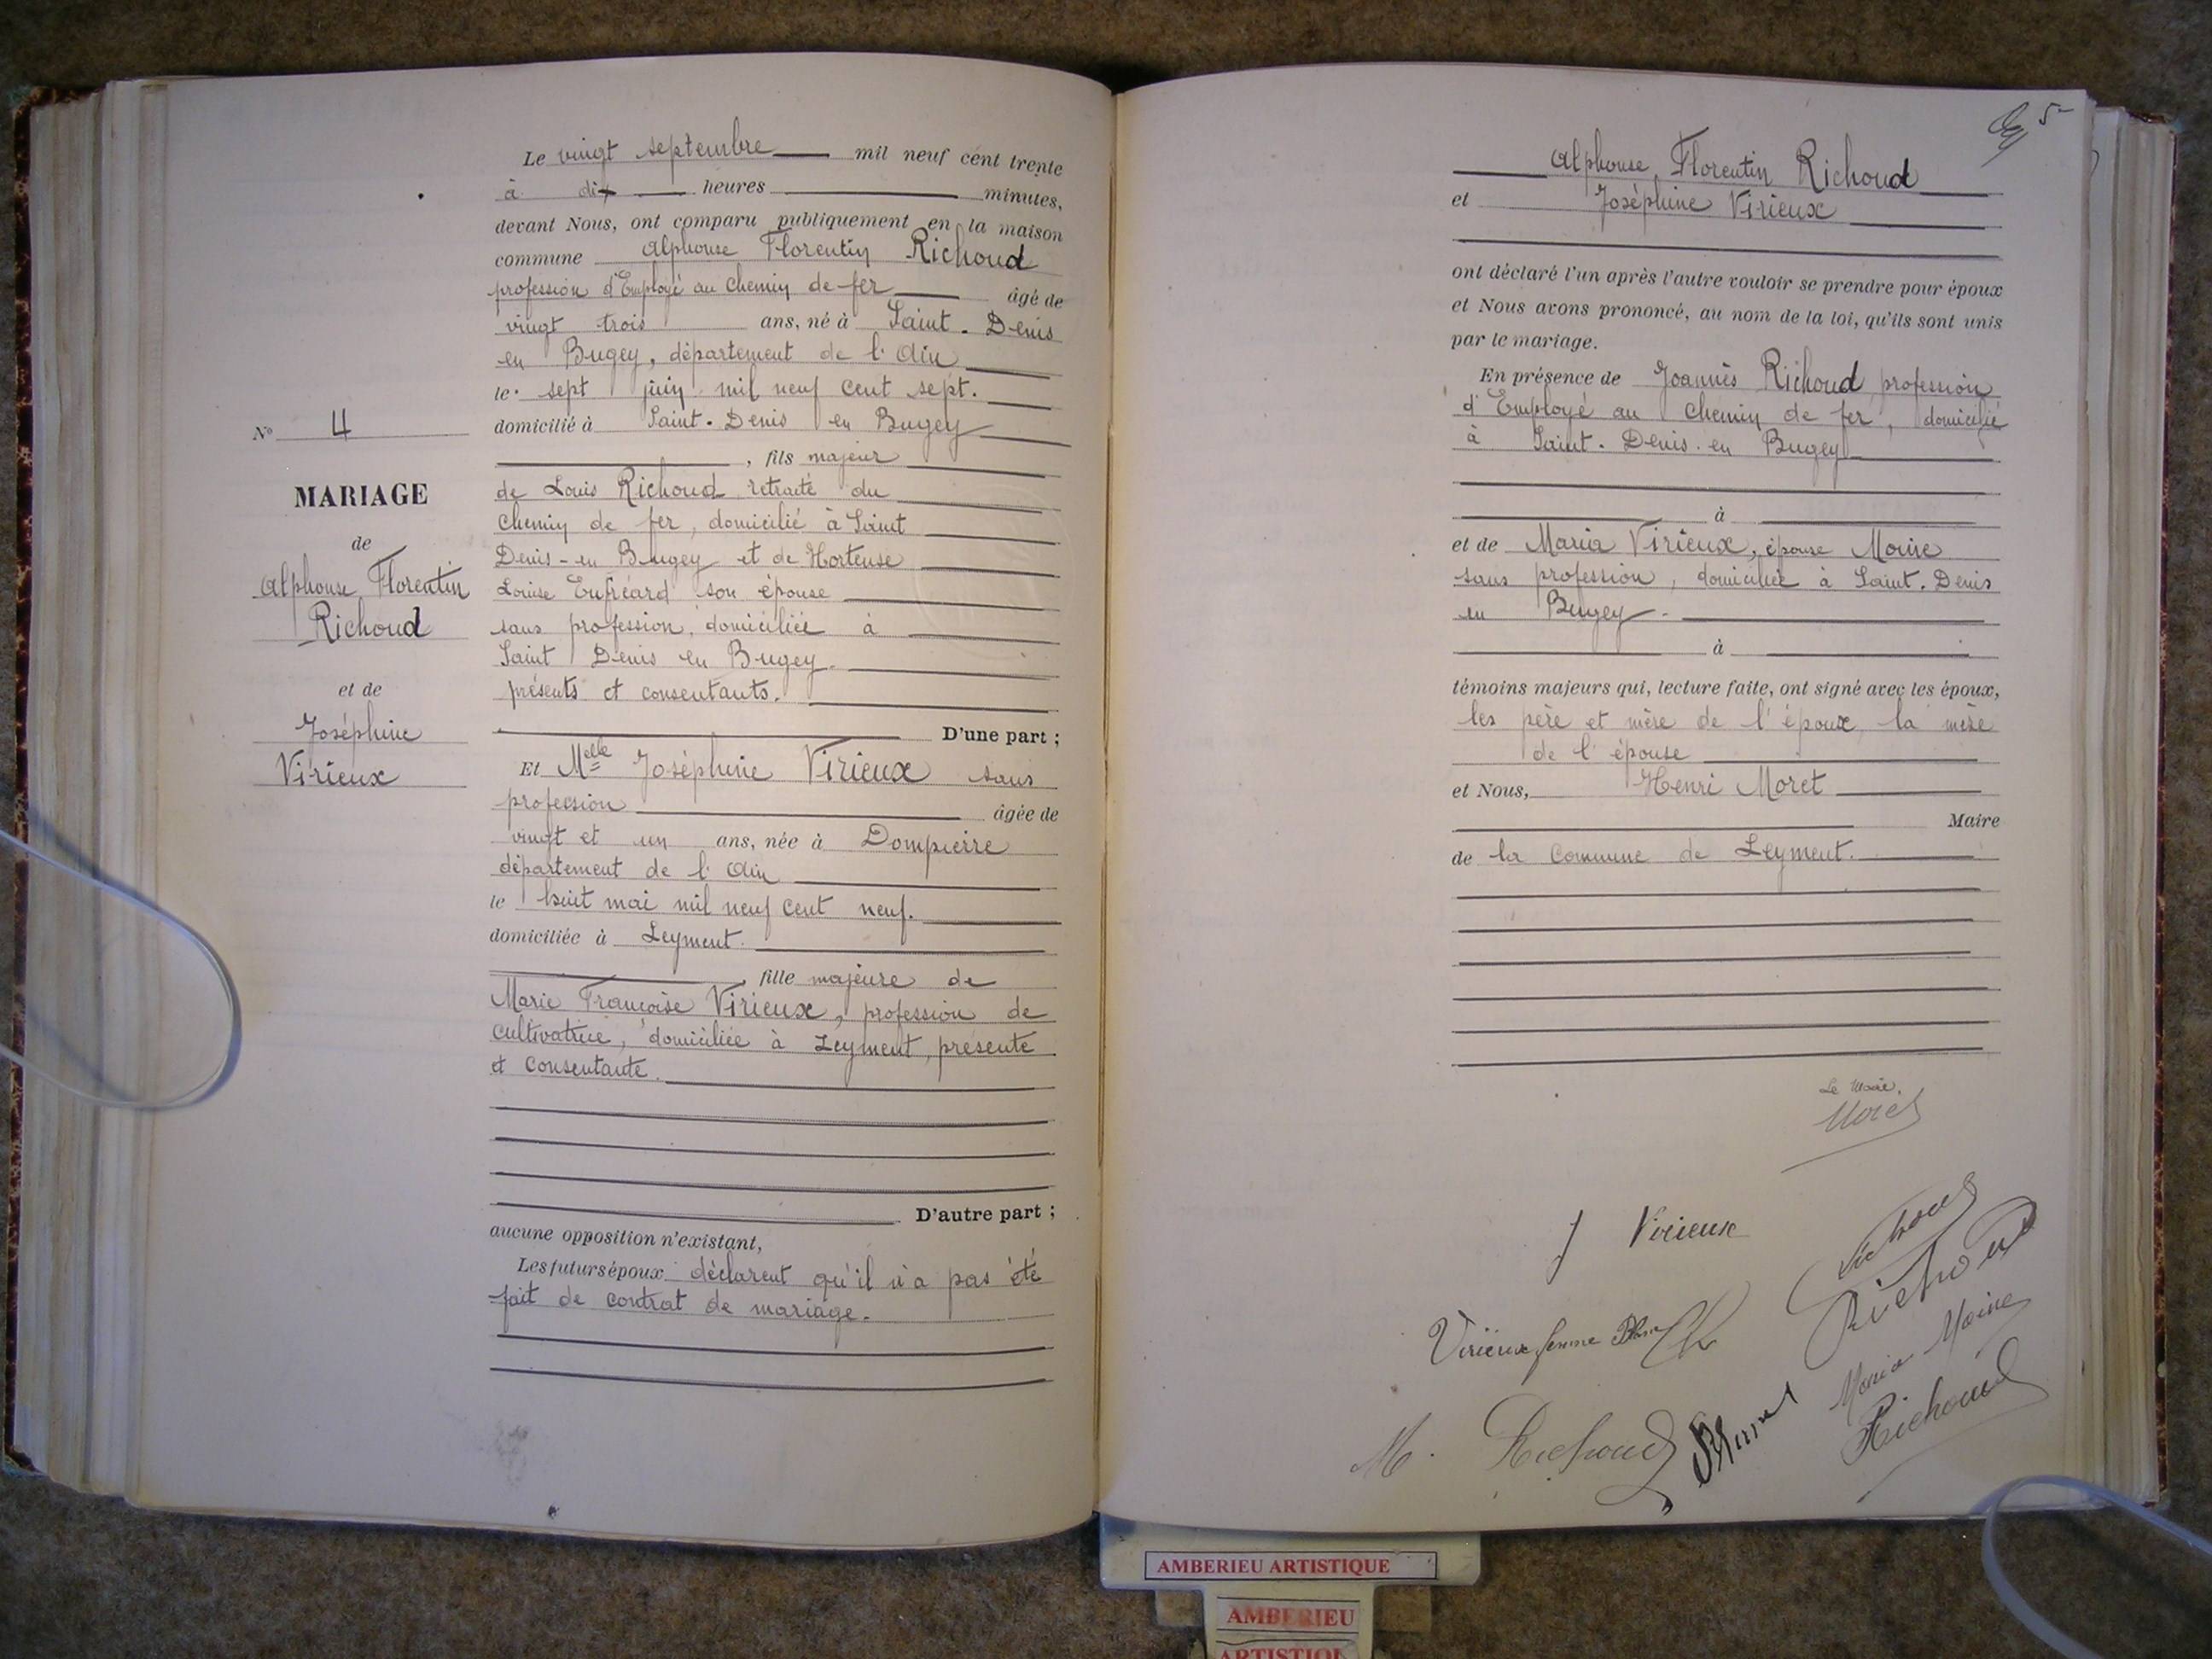 Le vingt septembre mil neuf cent trente
à dix heures minutes,
devant Nous, ont comparu publiquement en la maison
commune Alphonse Florentin Richoud
profession d'Employé au chemin de fer âgé de
vingt trois ans, né à Saint-Denis
en Bugey, département de l'Ain
le sept juin mil neuf cent sept.
domicilié à Saint-Denis en Bugey
, fils majeur
de Louis Richoud retraité du
chemin de fer, domicilié à Saint
Denis-en Bugey et de Hortense
Louise Enfréard son épouse
sans profession, domiciliée à
Saint Denis en Bugey.
présents et consentants.
D'une part ;
Et Melle Joséphine Virieux sans
profession âgée de
vingt et un ans, née à Dompierre
département de l'Ain
le huit mai mil neuf cent neuf.
domiciliée à Leyment.
, fille majeure de
Marie Françoise Virieux, profession de
cultivatrice, domiciliée à Leyment, présente
et consentante.
D'autre part ;
aucune opposition n'existant,
Les futurs époux déclarent qu'il n'a pas été
fait de contrat de mariage.
N° 4
MARIAGE
de
Alphonse Florentin
Richoud
et de
Joséphine
Virieux
5
Alphonse Florentin Richoud
et Joséphine Virieux
ont déclaré l'un après l'autre vouloir se prendre pour époux
et Nous avons prononcé, au nom de la loi, qu'ils sont unis
par le mariage.
En présence de Joannès Richoud, profession
d'Employé au chemin de fer, domicilié
à Saint-Denis-en Bugey
à
et de Maria Virieux, épouse Moine
sans profession, domiciliée à Saint-Denis
en Bugey-
à
témoins majeurs qui, lecture faite, ont signé avec les époux,
les père et mère de l'époux, la mère
de l'épouse
et Nous, Henri Moret
Maire
de la Commune de Leyment.
Le Maire,
Moret
J Virieux
Richoud
Richoud
Virieux femme
Maria Moine
M. Richoud
Richoud
AMBERIEU ARTISTIQUE
AMBERIEU
ARTISTIQUE